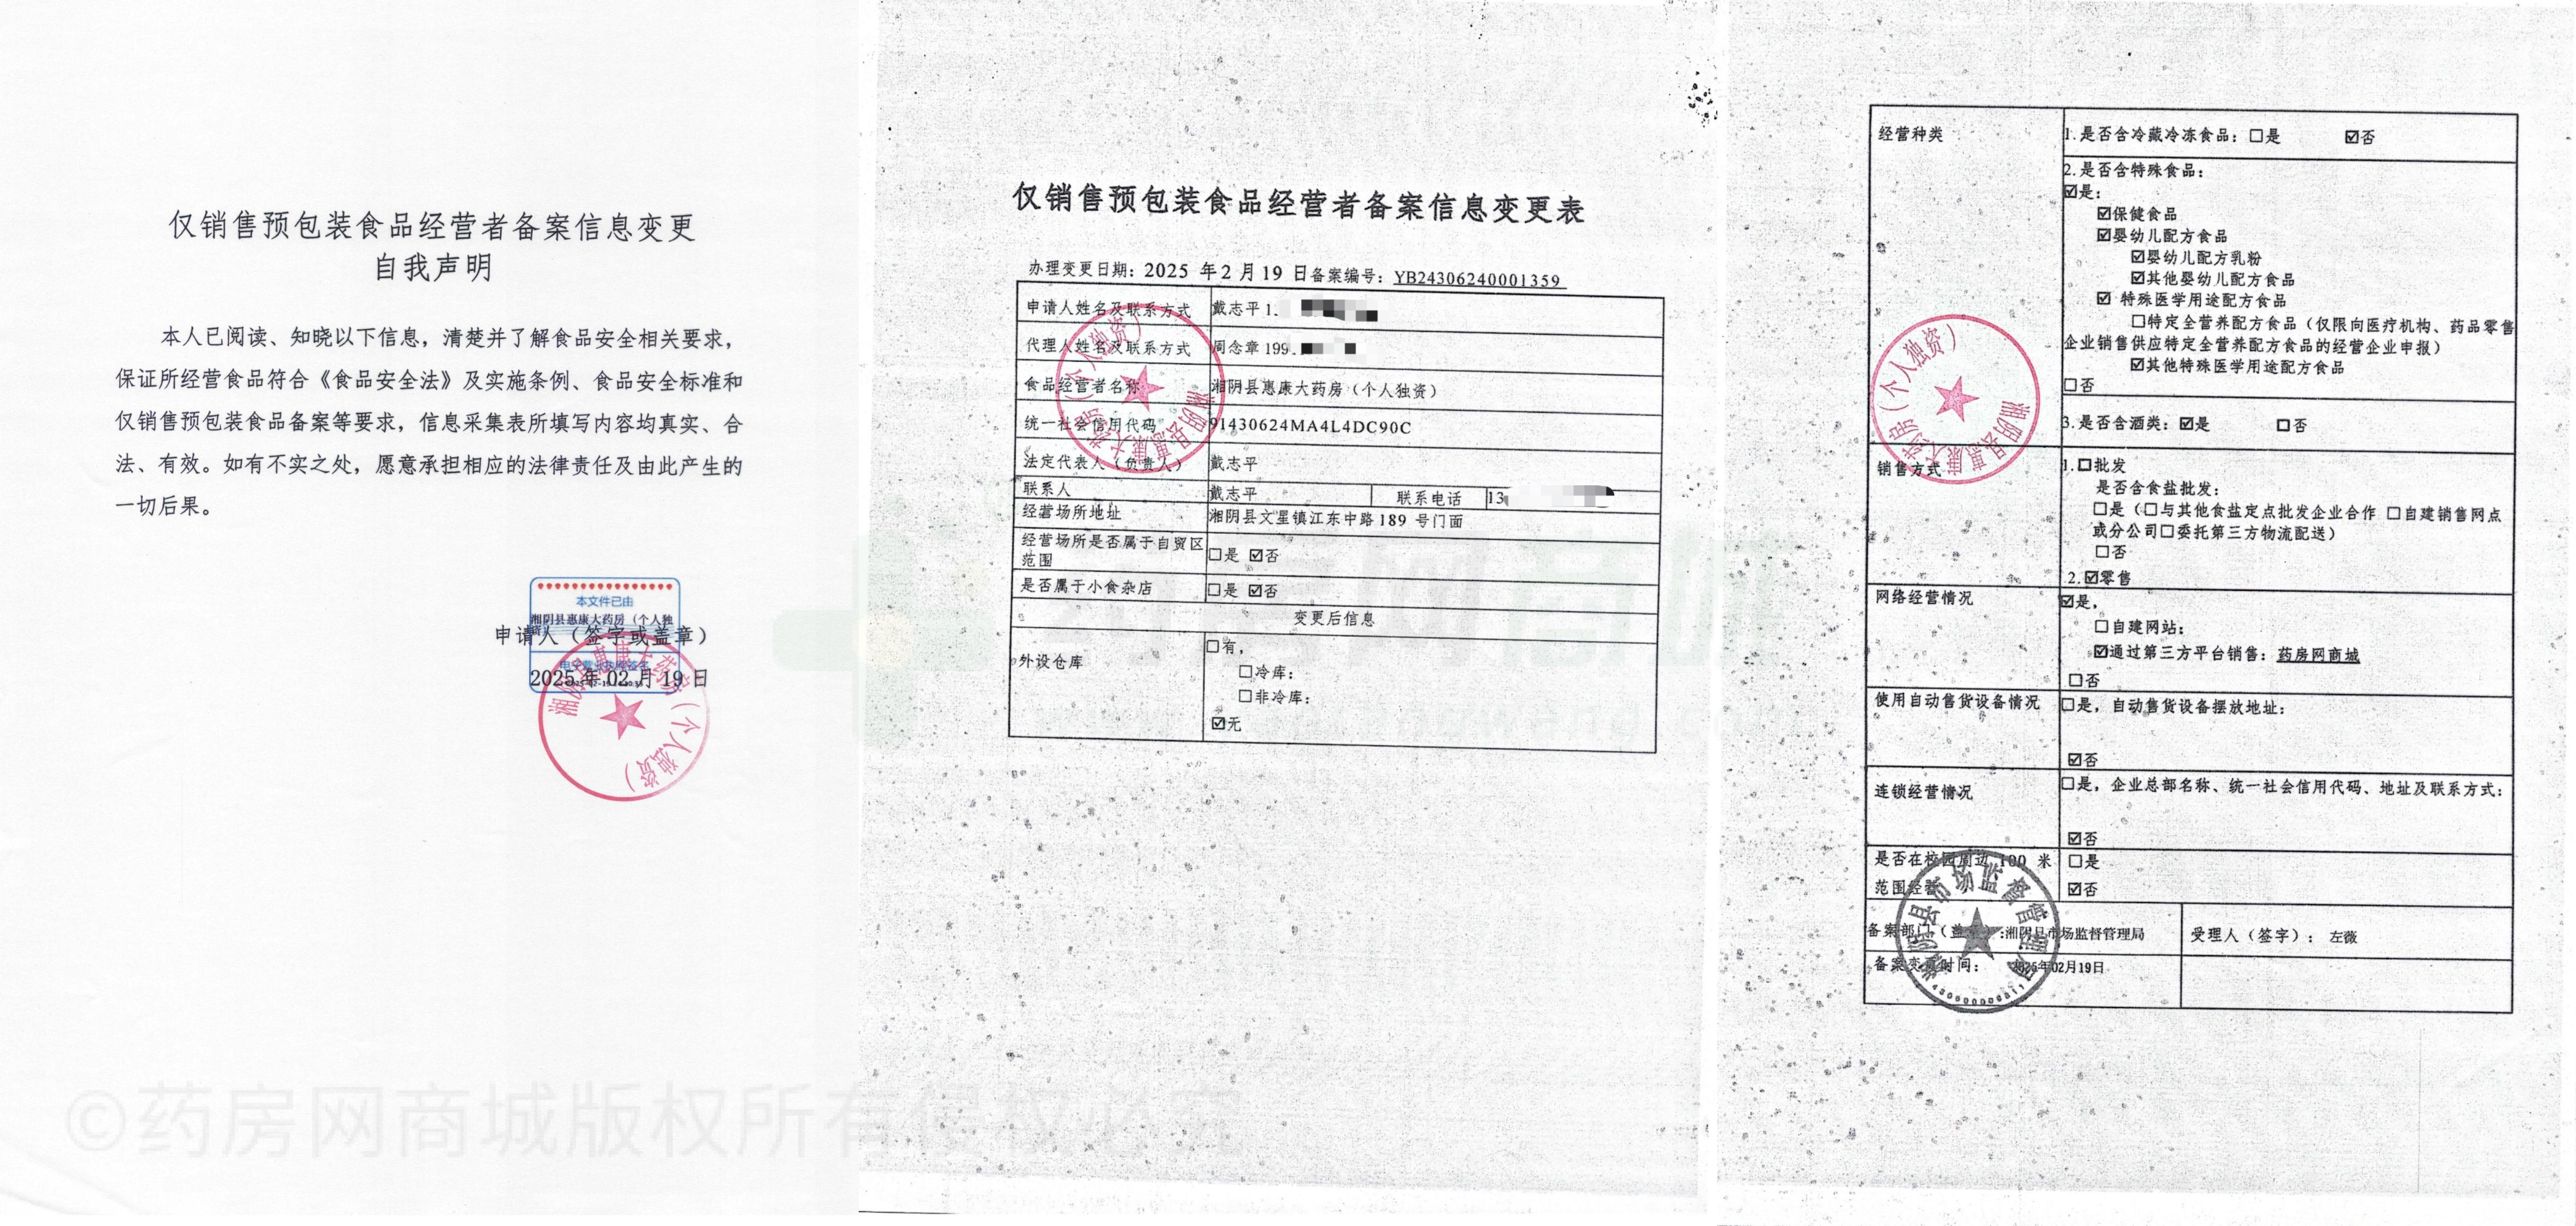 仅销售预包装食品经营者备案信息变更
自我声明
本人已阅读、知晓以下信息，清楚并了解食品安全相关要求，
保证所经营食品符合《食品安全法》及实施条例、食品安全标准和
仅销售预包装食品备案等要求，信息采集表所填写内容均真实、合
法、有效。如有不实之处，愿意承担相应的法律责任及由此产生的
一切后果。
本文件已由
湘阴县惠康大药房（个人独
申请人（签字或盖章）
电子营业执照签名
2025年 02月 19 日
湘阴县惠康大药房（个人独资）
©药房网商城版权所有侵权必究
仅销售预包装食品经营者备案信息变更表
办理变更日期：2025 年2 月 19 日备案编号：YB24306240001359
申请人姓名及联系方式 戴志平 1
代理人姓名及联系方式 周念章 199
食品经营者名称 湘阴县惠康大药房（个人独资）
统一社会信用代码 91430624MA4L4DC90C
法定代表人（负责人） 戴志平
联系人 戴志平 联系电话 13
经营场所地址 湘阴县文星镇江东中路 189 号门面
经营场所是否属于自贸区 □是 ☑否
范围
是否属于小食杂店 □是 ☑否
变更后信息
外设仓库 □有，
□冷库：
□非冷库：
☑无
湘阴县惠康大药房（个人独资）
经营种类 1.是否含冷藏冷冻食品：□是 ☑否
2.是否含特殊食品：
☑是：
☑保健食品
☑婴幼儿配方食品
☑婴幼儿配方乳粉
☑其他婴幼儿配方食品
☑ 特殊医学用途配方食品
□特定全营养配方食品（仅限向医疗机构、药品零售
企业销售供应特定全营养配方食品的经营企业申报）
☑其他特殊医学用途配方食品
□否
3.是否含酒类：☑是 □否
湘阴县惠康大药房（个人独资）
销售方式 1.□批发
是否含食盐批发：
□是（□与其他食盐定点批发企业合作 □自建销售网点
或分公司□委托第三方物流配送）
□否
2.☑零售
网络经营情况 ☑是，
□自建网站：
☑通过第三方平台销售：药房网商城
□否
使用自动售货设备情况 □是，自动售货设备摆放地址：
☑否
连锁经营情况 □是，企业总部名称、统一社会信用代码、地址及联系方式：
☑否
是否在校园周边 100 米 □是
范围经营 ☑否
备案部门（盖章）：湘阴县市场监督管理局 受理人（签字）：左薇
备案变更时间： 2025年02月19日
湘阴县市场监督管理局